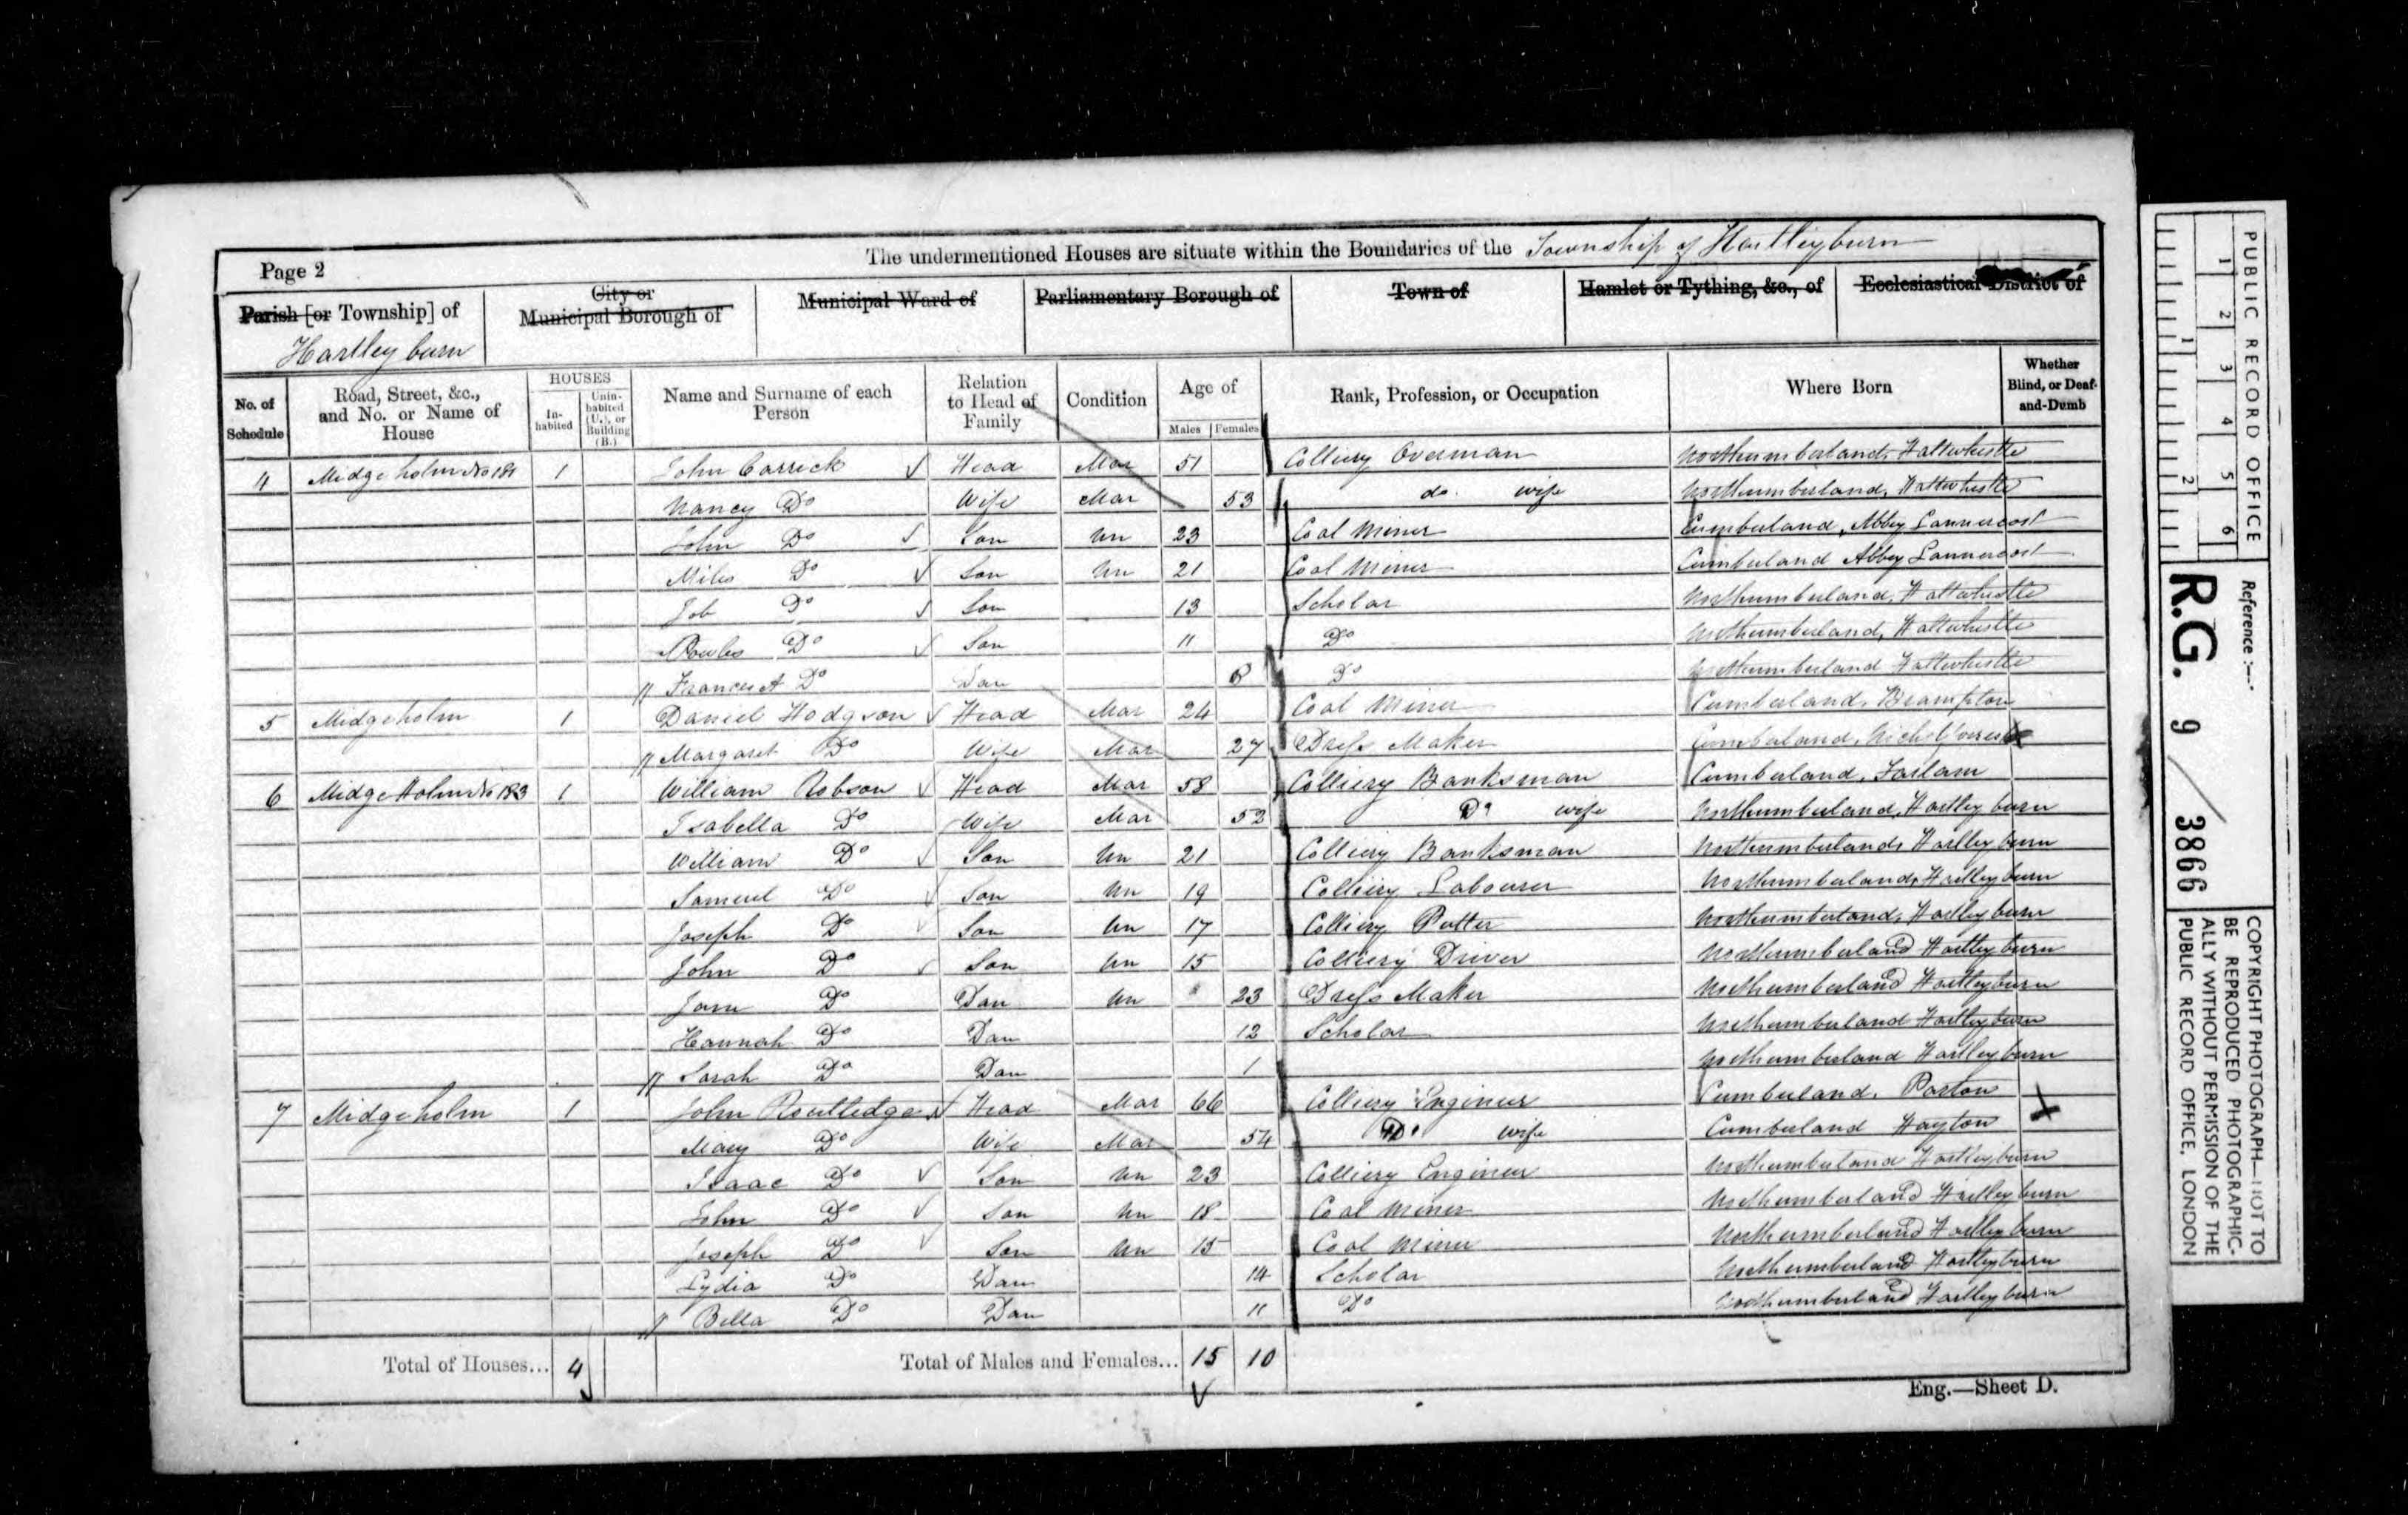 Page 2 The undermentioned Houses are situate within the Boundaries of the Township of Hartleyburn
Parish [or Township] of City or Municipal Borough of Municipal Ward of Parliamentary Borough of Town of Hamlet or Tything, &c., of Ecclesiastical District of
Hartleyburn
No. of Schedule Road, Street, &c., and No. or Name of House HOUSES In-habited Unin-habited (U.), or Building (B.) Name and Surname of each Person Relation to Head of Family Condition Age of Males Females Rank, Profession, or Occupation Where Born Whether Blind, or Deaf-and-Dumb
4 Midgeholm No 181 1 John Carrick Head Mar 51 Colliery Overman Northumberland, Haltwhistle
Nancy Do Wife Mar 53 do. wife Northumberland, Haltwhistle
John Do Son Un 23 Coal Miner Cumberland, Abbey Lannercost
Miles Do Son Un 21 Coal Miner Cumberland Abbey Lannercost
Job Do Son 13 Scholar Northumberland, Haltwhistle
Do Son 11 Do Northumberland, Haltwhistle
Frances A Do Dau 8 Do Northumberland Haltwhistle
5 Midgeholm 1 Daniel Hodgson Head Mar 24 Coal Miner Cumberland, Brampton
Margaret Do Wife Mar 27 Dress Maker Cumberland,
6 Midge Holm No 183 1 William Robson Head Mar 58 Colliery Banksman Cumberland, Farlam
Isabella Do Wife Mar 52 Do wife Northumberland, Hartleyburn
William Do Son Un 21 Colliery Banksman Northumberland, Hartleyburn
Samuel Do Son Un 19 Colliery Labourer Northumberland, Hartleyburn
Joseph Do Son Un 17 Colliery Putter Northumberland, Hartleyburn
John Do Son Un 15 Colliery Driver Northumberland Hartleyburn
Jane Do Dau Un 23 Dress Maker Northumberland Hartleyburn
Hannah Do Dau 12 Scholar Northumberland Hartleyburn
Sarah Do Dau 1 Northumberland Hartleyburn
7 Midgeholm 1 John Routledge Head Mar 66 Colliery Engineer Cumberland,
Mary Do Wife Mar 54 Do wife Cumberland Hayton
Isaac Do Son Un 23 Colliery Engineer Northumberland Hartleyburn
John Do Son Un 18 Coal Miner Northumberland Hartleyburn
Joseph Do Son Un 15 Coal Miner Northumberland Hartleyburn
Lydia Do Dau 14 Scholar Northumberland Hartleyburn
Bella Do Dau 11 Do Northumberland Hartleyburn
Total of Houses... 4 Total of Males and Females... 15 10
Eng.—Sheet D.
PUBLIC RECORD OFFICE
1 2 3 4 5 6
1 2
Reference :—
R.G. 9 / 3866
COPYRIGHT PHOTOGRAPH—NOT TO
BE REPRODUCED PHOTOGRAPHIC-
ALLY WITHOUT PERMISSION OF THE
PUBLIC RECORD OFFICE, LONDON